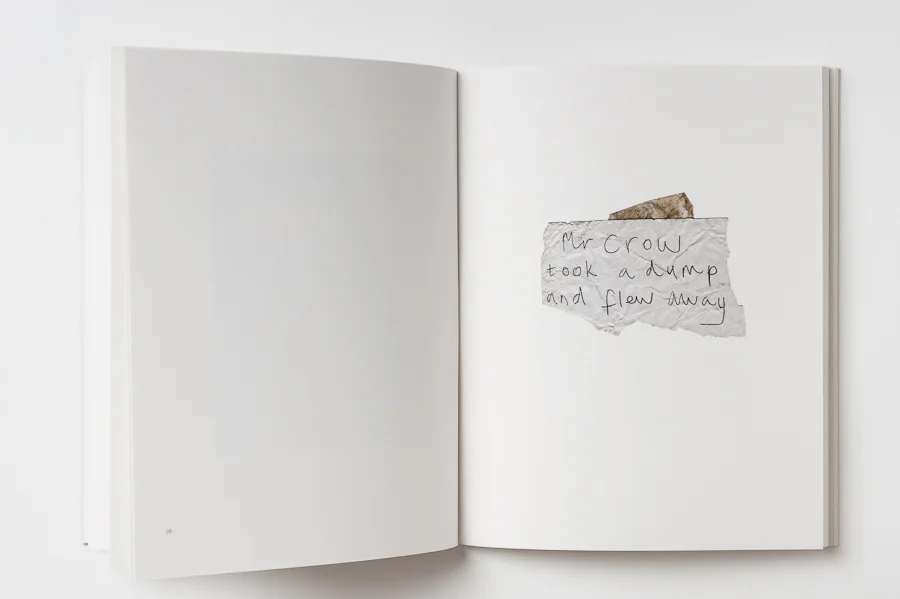 Mr Crow
took a dump
and flew away